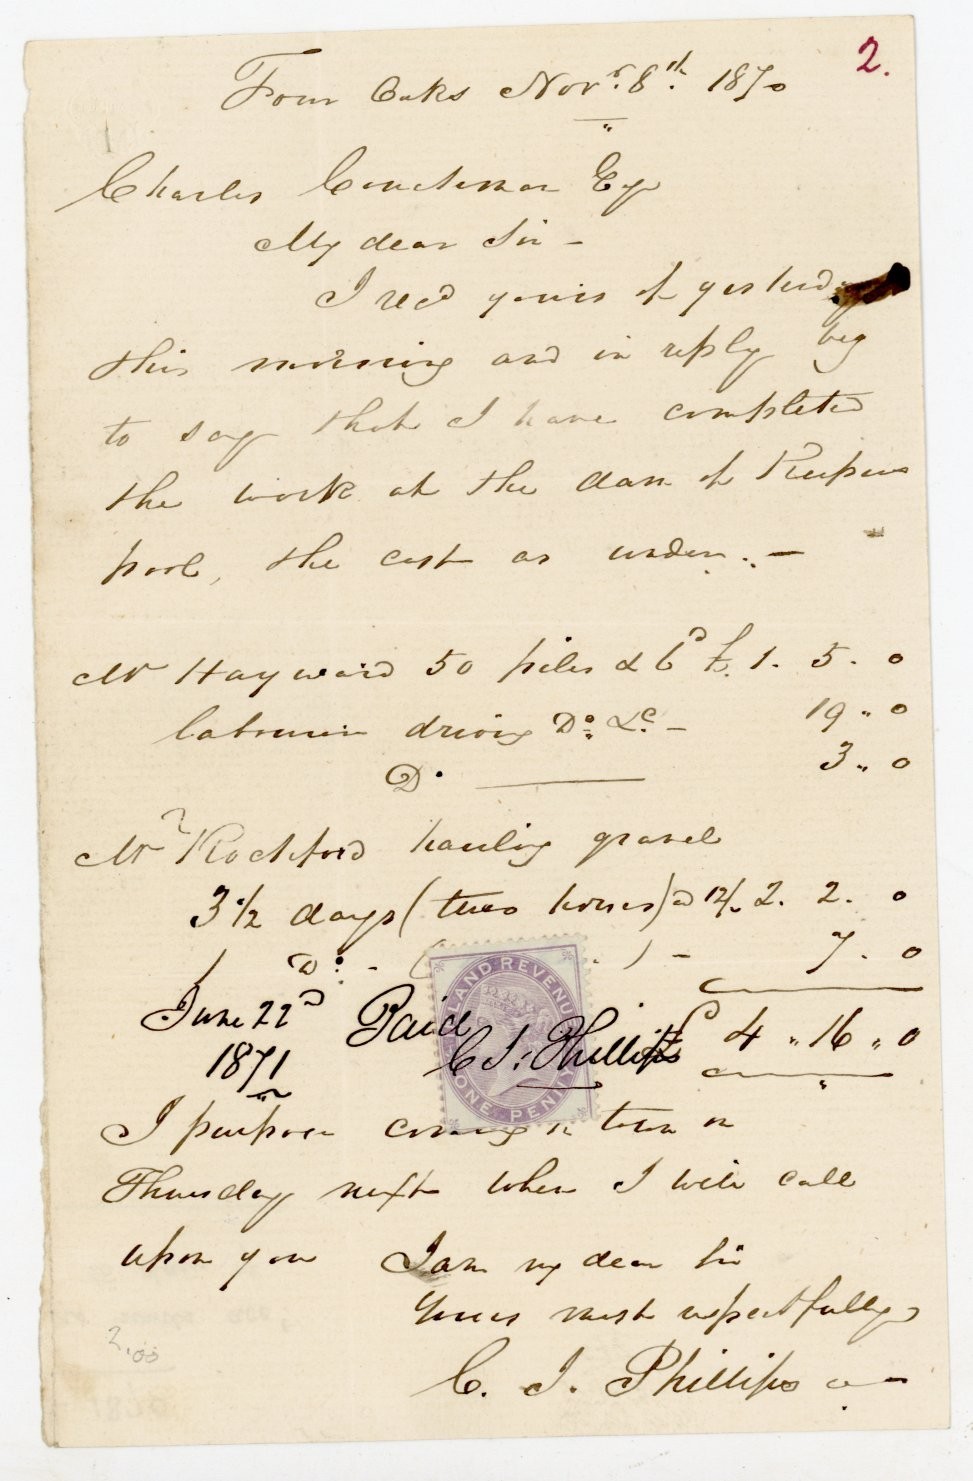 2.
Four Oaks Novr. 8th. 1870
Charles Esqr
My dear Sir -
I recd yours of yesterday
this morning and in reply beg
to say that I have completed
the work at the dam of Keepers
pool, the cost as under. -
Mr Hayward 50 piles @ 6d £. 1. 5. 0
labourers driving Do. &c. - 19 " 0
Do. 3 " 0
Mr Rochford hauling gravel
3 1/2 days (two horses) @ 12/. 2. 2. 0
1 Do. - ( ) - 7. 0
June 22d Paid
1871 C I. Phillips £ 4 " 16 " 0
INLAND REVENUE
ONE PENNY
I purpose coming in town on
Thursday next when I will call
upon you I am my dear Sir
Yours most respectfully
C. I. Phillips
2.00